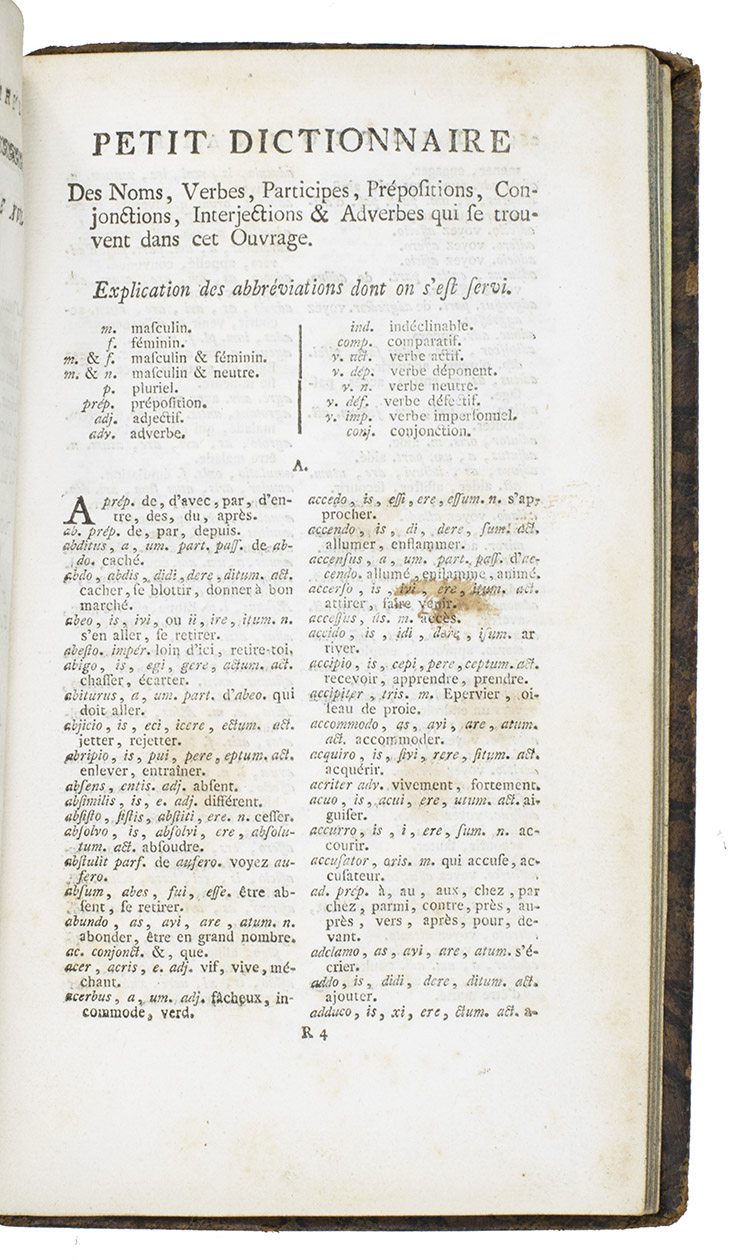 PETIT DICTIONNAIRE
Des Noms, Verbes, Participes, Prépoſitions, Con-
jonctions, Interjections & Adverbes qui ſe trou-
vent dans cet Ouvrage.
Explication des abbréviations dont on s'eſt ſervi.
m. maſculin.
f. féminin.
m. & f. maſculin & féminin.
m. & n. maſculin & neutre.
p. pluriel.
prép. prépoſition.
adj. adjectif.
adv. adverbe.
ind. indéclinable.
comp. comparatif.
v. act. verbe actif.
v. dép. verbe déponent.
v. n. verbe neutre.
v. déf. verbe défectif.
v. imp. verbe imperſonnel.
conj. conjonction.
A.
A prép. de, d'avec, par, d'en-
tre, des, du, après.
ab. prép. de, par, depuis.
abditus, a, um. part. paſſ. de ab-
do. caché.
abdo, abdis, didi, dere, ditum. act.
cacher, ſe blottir, donner à bon
marché.
abeo, is, ivi, ou ii, ire, itum. n.
s'en aller, ſe retirer.
abeſto. impér. loin d'ici, retire-toi.
abigo, is, egi, gere, actum. act.
chaſſer, écarter.
abiturus, a, um. part. d'abeo. qui
doit aller.
abjicio, is, eci, icere, ectum. act.
jetter, rejetter.
abripio, is, pui, pere, eptum. act.
enlever, entraîner.
abſens, entis. adj. abſent.
abſimilis, is, e. adj. différent.
abſiſto, ſiſtis, abſtiti, ere. n. ceſſer.
abſolvo, is, abſolvi, ere, abſolu-
tum. act. abſoudre.
abſtulit parf. de aufero. voyez au-
fero.
abſum, abes, fui, eſſe. être ab-
ſent, ſe retirer.
abundo, as, avi, are, atum. n.
abonder, être en grand nombre.
ac. conjonct. &, que.
acer, acris, e. adj. vif, vive, mé-
chant.
acerbus, a, um. adj. fâcheux, in-
commode, verd.
accedo, is, eſſi, ere, eſſum. n. s'ap-
procher.
accendo, is, di, dere, ſum. act.
allumer, enflammer.
accenſus, a, um. part. paſſ. d'ac-
cendo. allumé, enflamme, animé.
accerſo, is, ivi, ere, itum. act.
attirer, faire venir.
acceſſus, ûs. m. accès.
accido, is, idi, dere, iſum. ar
river.
accipio, is, cepi, pere, ceptum. act.
recevoir, apprendre, prendre.
accipiter, tris. m. Epervier, oi-
ſeau de proie.
accommodo, as, avi, are, atum.
act. accommoder.
acquiro, is, ſivi, rere, ſitum. act.
acquérir.
acriter adv. vivement, fortement.
acuo, is, acui, ere, utum. act. ai-
guiſer.
accurro, is, i, ere, ſum. n. ac-
courir.
accuſator, oris. m. qui accuſe, ac-
cuſateur.
ad. prép. à, au, aux, chez, par
chez, parmi, contre, près, au-
près, vers, après, pour, de-
vant.
adclamo, as, avi, are, atum. s'é-
crier.
addo, is, didi, dere, ditum. act.
ajouter.
adduco, is, xi, ere, ctum. act. a-
R 4